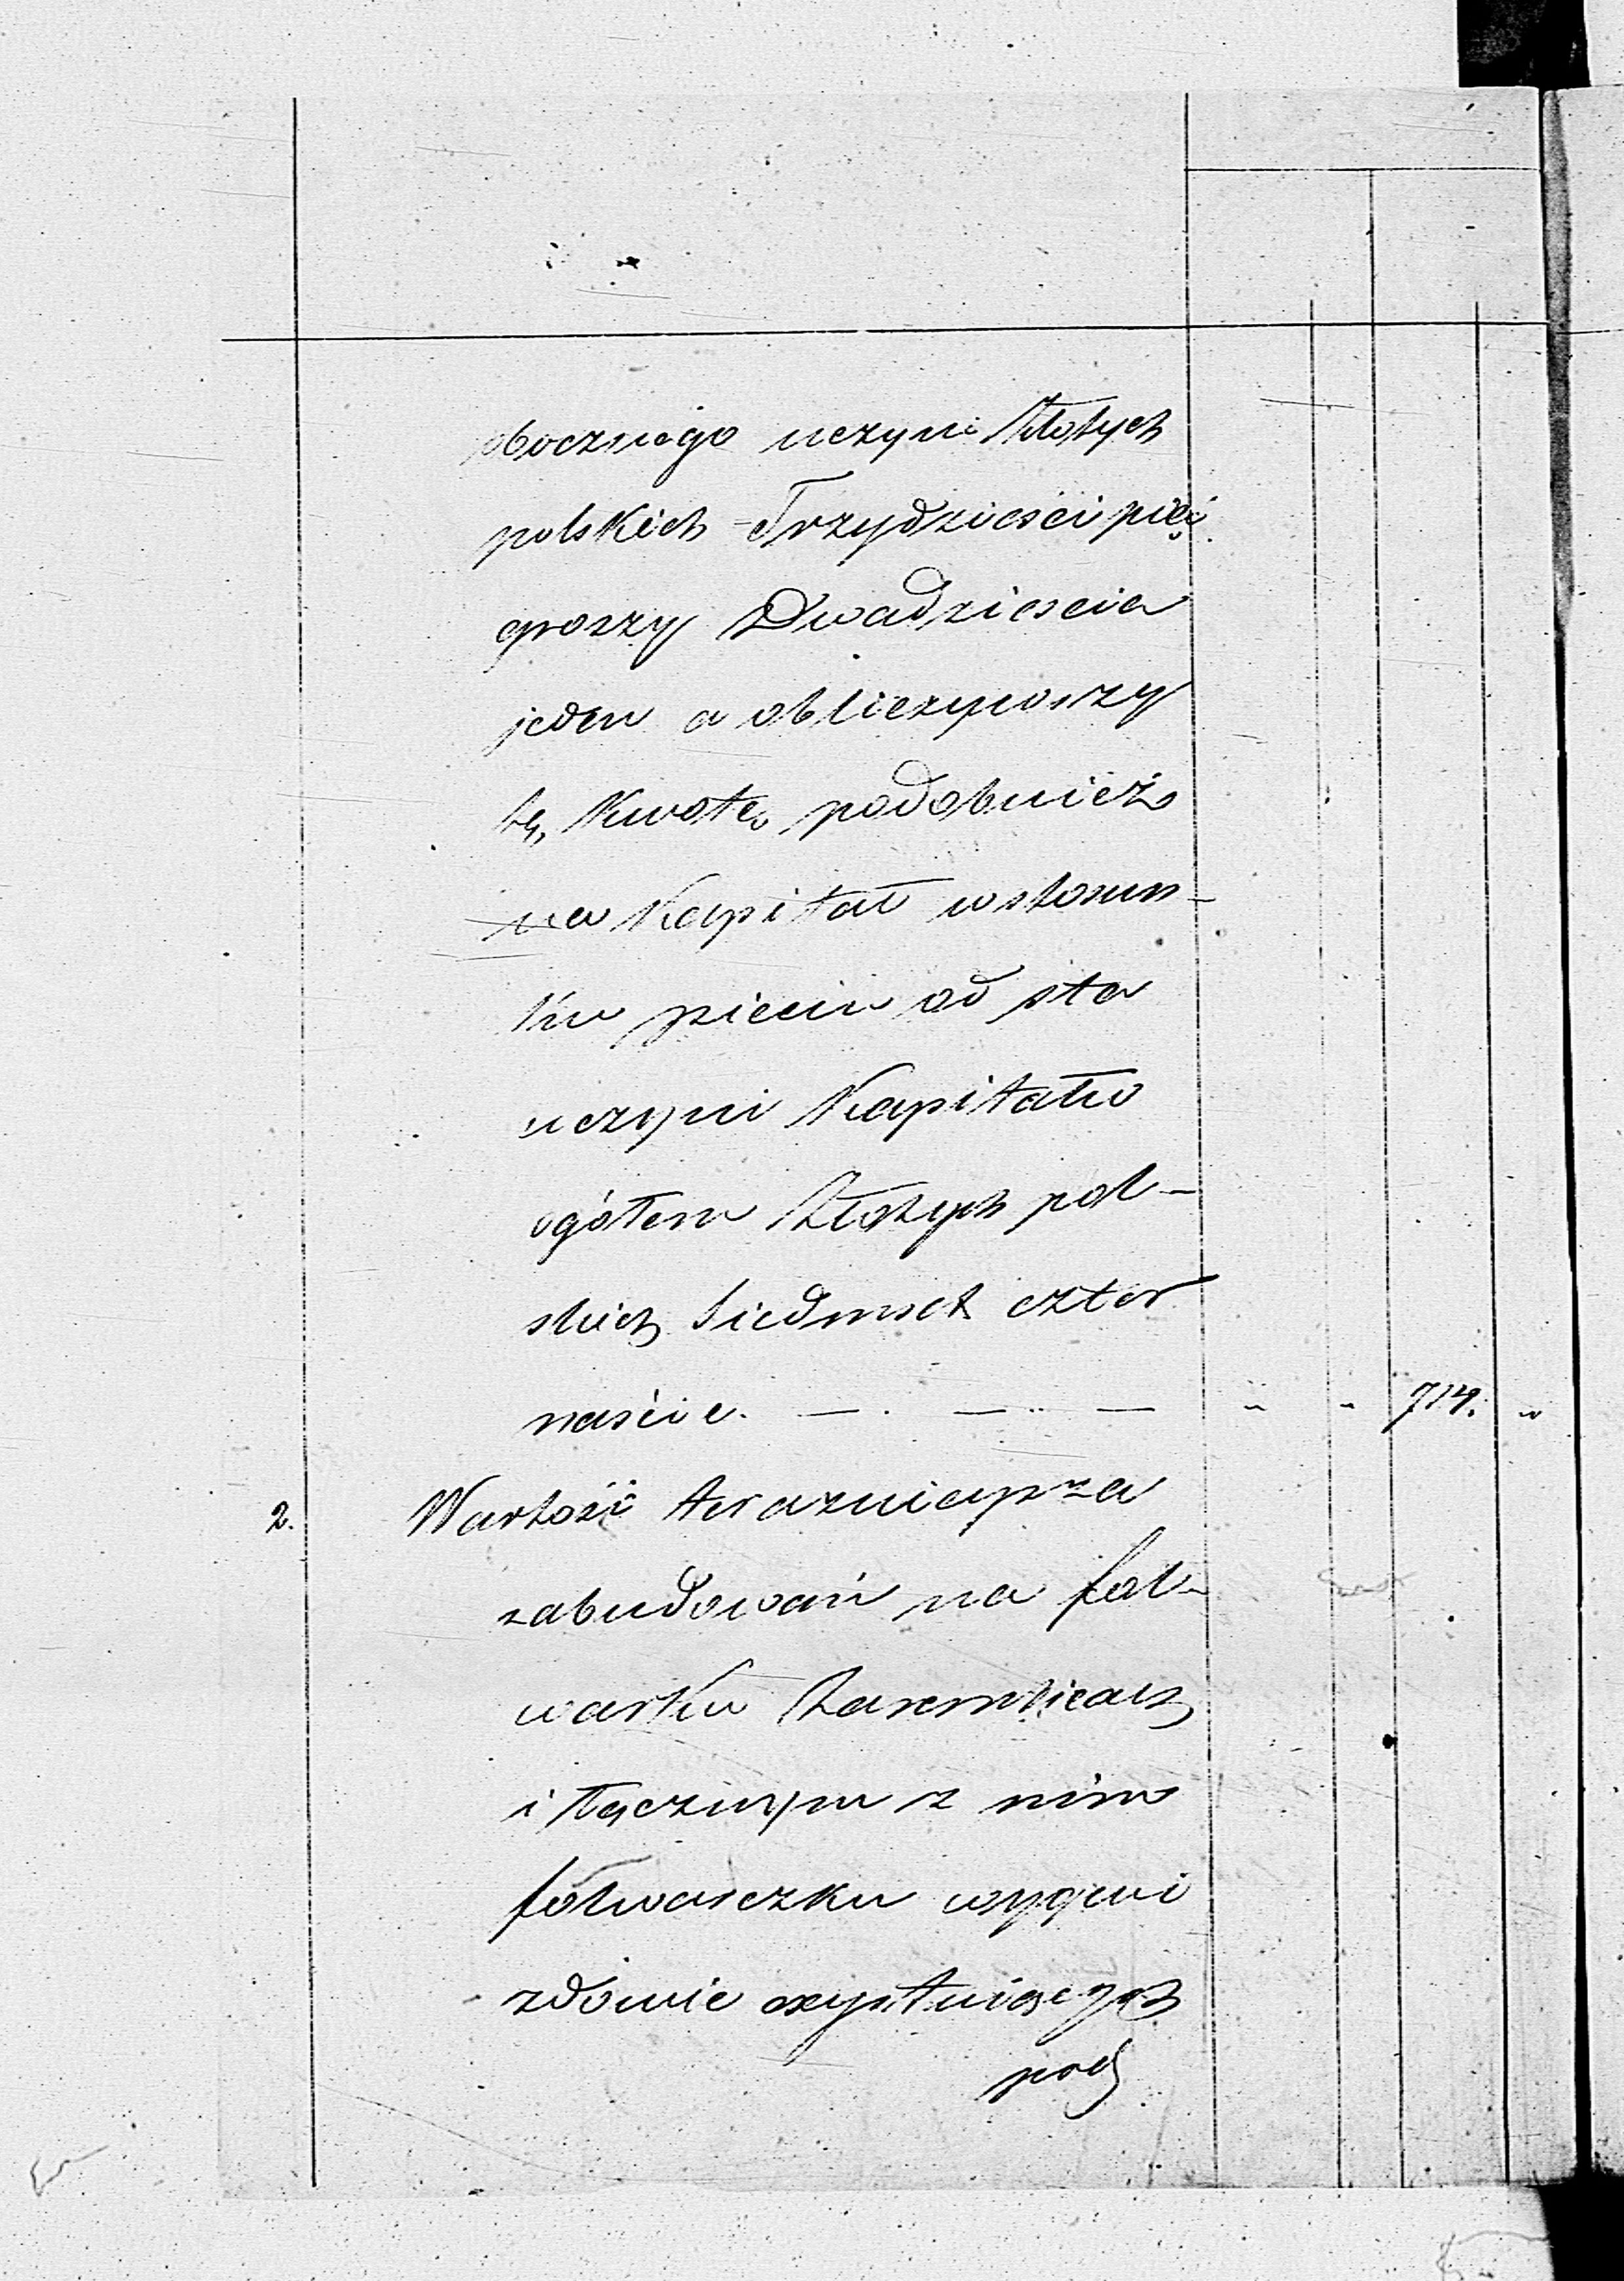 obocznego uczyni Złotych
polskich Trzydzieści pięć
groszy Dwadzieścia
jeden a obliczywszy
tę Kwotę podobnież
na Kapitał w stosun-
ku pięciu od sta
uczyni Kapitału
ogółem Złotych pol-
skich Siedmset czter
naście. — . — .. — " " 714. "
2. Wartość teraznieysza
zabudowań na fol-
warku
i łącznym z nim
folwarczku
zdowie exystuiących
pod